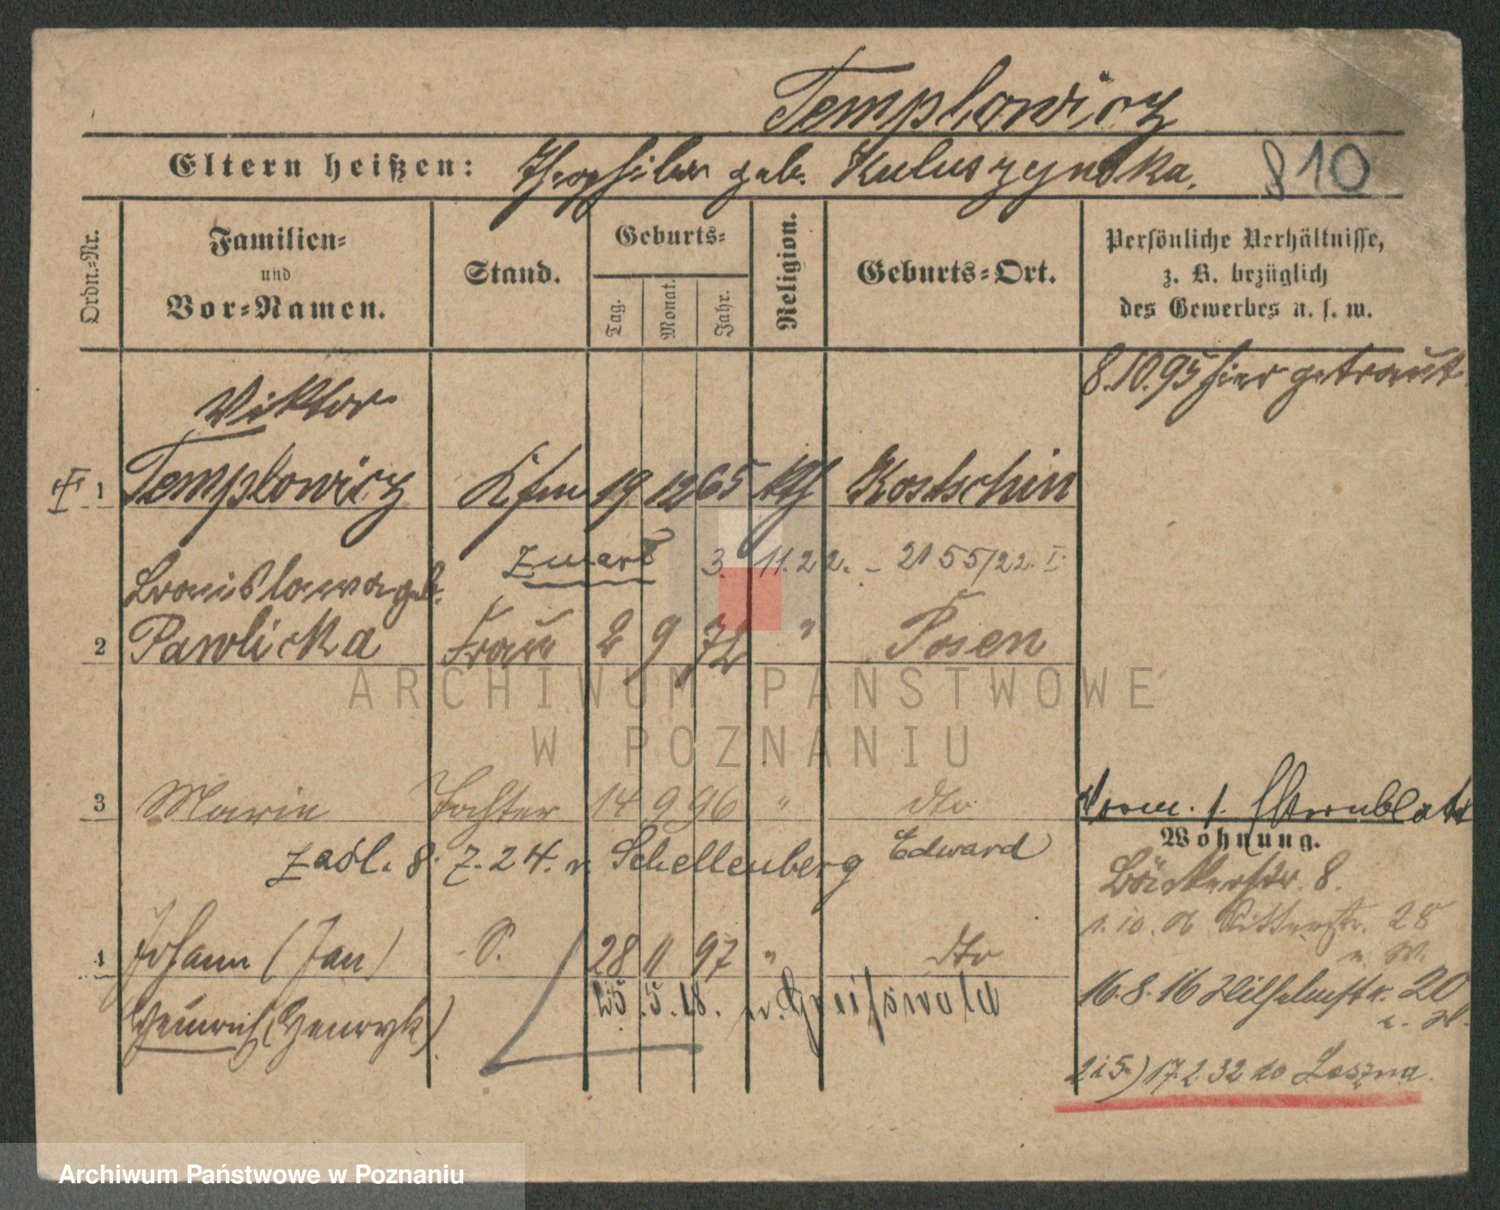 Templowicz
Eltern heißen: Theophil u geb. Kuluszynska. 810
Ordn.-Nr.
Familien-
und
Vor-Namen.
Stand.
Geburts-
Tag. Monat. Jahr.
Religion.
Geburts-Ort.
Persönliche Verhältnisse,
z. B. bezüglich
des Gewerbes u. s. w.
8.10.95 hier getraut
Viktor
1 Templowicz Kfm 19 12 65 kth Kostschin
zmarł 3. 11. 22. - 2155/22. I
Bronislawa geb.
2 Pawlicka Frau 2 9 72 " Posen
3 Marie Tochter 14 9 96 " dto
zaśl. 8. 7. 24. v. Schellenberg Edward
Wohnung.
Bäckerstr. 8.
1. 10. 06 Ritterstr. 28
4 Johann (Jan) S. 28 11 97 " dto
Heinrich (Henryk)
25. 5. 18.
16. 8. 16 Wilhelmstr. 20
2 i 5) 17. 2. 32 do Leszna
ARCHIWUM PAŃSTWOWE
W POZNANIU
Archiwum Państwowe w Poznaniu